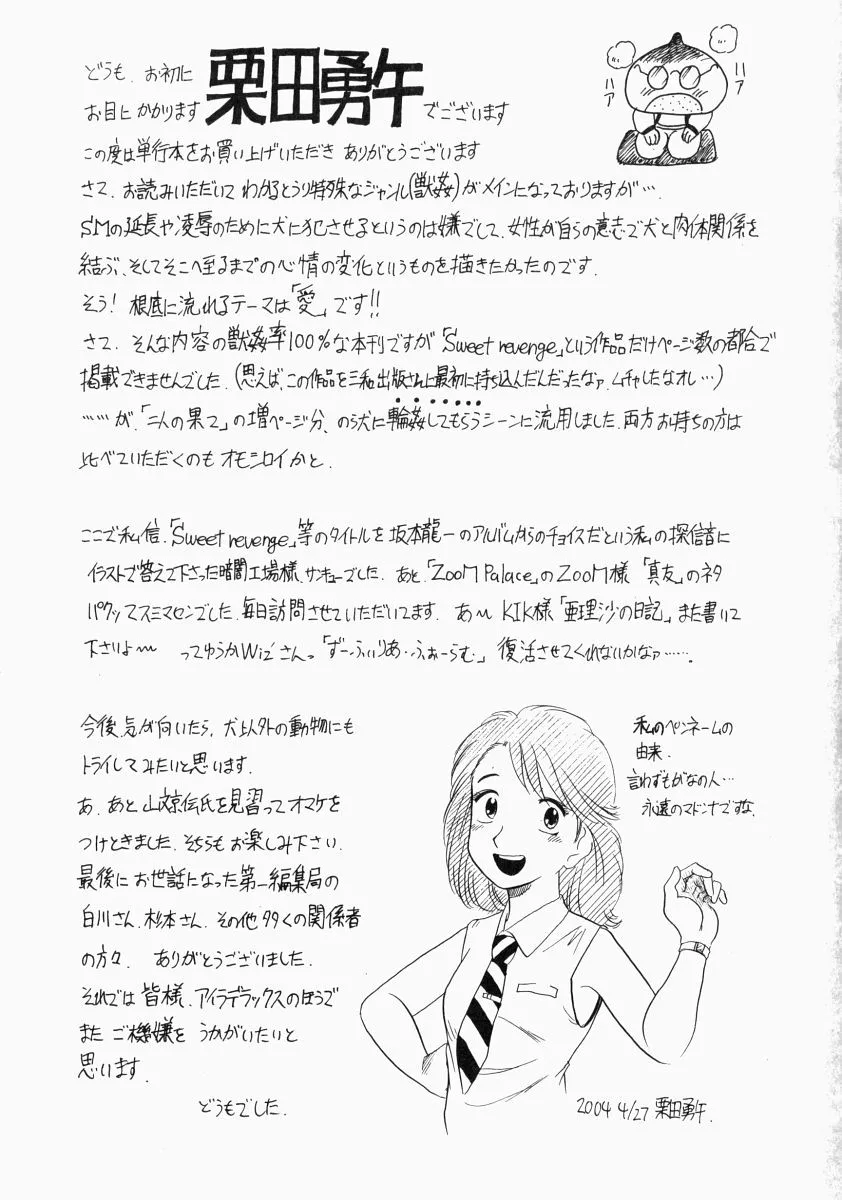 どうも、お初に
お目にかかります 栗田勇午 でございます
ハア
ハア
この度は単行本をお買い上げいただき ありがとうございます
さて、お読みいただいて わかるとうり特殊なジャンル(獣姦)がメインになっておりますが…。
SMの延長や凌辱のために犬に犯させるというのは嫌でして、女性が自らの意志で犬と肉体関係を
結ぶ、そしてそこへ至るまでの心情の変化というものを描きたかったのです。
そう! 根底に流れるテーマは「愛」です!!
さて、そんな内容の獣姦率100%な本刊ですが「Sweet revenge」という作品だけページ数の都合で
掲載できませんでした。(思えば、この作品を三和出版さんに最初に持ち込んだんだったなァ。ムチャしたなオレ…)
……が、「二人の果て」の増ページ分、のら犬に輪姦してもらうシーンに流用しました。両方お持ちの方は
比べていただくのも オモシロイかと。
ここで私信、「Sweet revenge」等のタイトルを坂本龍一のアルバムからのチョイスだという私の探信音に
イラストで答えて下さった暗闇工場様、サンキューでした。あと、「ZooM Palace」のZooM様 「真友」のネタ
パクッてスミマセンでした。毎日訪問させていただいてます。 あ〜 KIK様「亜理沙の日記」また書いて
下さいよ〜 ってゆうかWiz'さんっ「ずーふぃりあ・ふぉーらむ」 復活させてくれないかなァ……。
今後、気が向いたら、犬以外の動物にも
トライしてみたいと思います。
あ、あと 山文京伝氏を見習って オマケを
つけときました。そちらも お楽しみ下さい。
最後に お世話になった 第一編集局の
白川さん、杉本さん、その他 多くの関係者
の方々、 ありがとうございました。
それでは 皆様、アイラデラックスのほうで
また ご機嫌を うかがいたいと
思います。
どうもでした。
私のペンネームの
由来。
言わずもがなの人…
永遠のマドンナですな。
2004 4/27 栗田勇午.